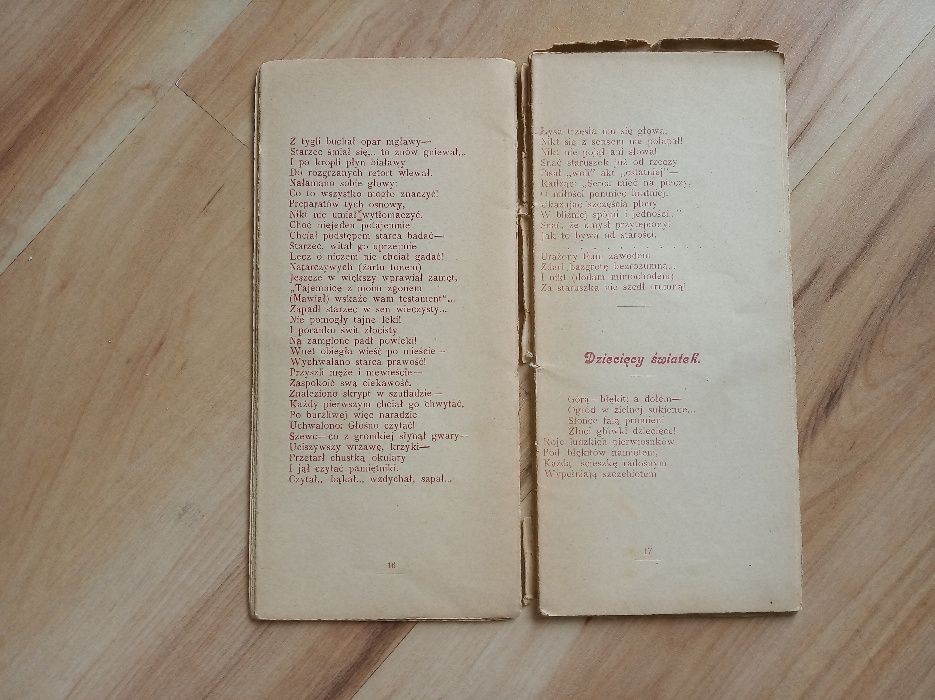 Z tygli buchał opar mgławy—
Starzec śmiał się... to znów gniewał...
I po kropli płyn białawy
Do rozgrzanych retort wlewał.
Nałamano sobie głowy:
Co to wszystko mogło znaczyć!
Preparatów tych osnowy,
Nikt nie umiał wytłomaczyć.
Choć niejeden potajemnie
Chciał podstępem starca badać—
Starzec, witał go uprzejmie
Lecz o niczem nie chciał gadać!
Natarczywych (żartu tonem)
Jeszcze w większy wprawiał zamęt,
„Tajemnicę z moim zgonem
(Mawiał) wskaże wam testament“...
Zapadł starzec w sen wieczysty...
Nie pomogły tajne leki!
I poranku świt złocisty
Na zamglone padł powieki!
Wnet obiegła wieść po mieście—
Wychwalano starca prawość!
Przyszli męże i niewieście—
Zaspokoić swą ciekawość.
Znaleziono skrypt w szufladzie—
Każdy pierwszym chciał go chwytać,
Po burzliwej więc naradzie
Uchwalono: Głośno czytać!
Szewc—co z gromkiej słynął gwary—
Uciszywszy wrzawę, krzyki—
Przetarł chustką okulary
I jął czytać pamiętniki.
Czytał.. bąkał... wzdychał, sapał...
16
Łysa trzęsła mu się głowa,
Nikt się z sensem nie połapał!
Nikt nie pojął ani słowa!
Snać staruszek już od rzeczy
Pisał „woli“ akt „ostatniej“—
Radząc: „Serca mieć na pieczy,
O miłości pomnieć bratniej.
Ukazując szczęścia plony
W bliźniej spójni i jedności..“
Snać, że umysł przytępiony,
Jak to bywa od starości.
Urażony tym zawodem
Zdarł bazgrotę bezrozumną...
I nikt okołem mimochodem
Za staruszka nie szedł trumną!
Dziecięcy światek.
Górą—błękit; a dołem—
Ogród w zielnej sukience...
Słońce falą promieni
Złoci główki dziecięce!
Roje ludzkich pierwiosnków
Pod błękitów namiotem,
Każdą ścieszkę radosnym
Wypełniają szczebiotem
17